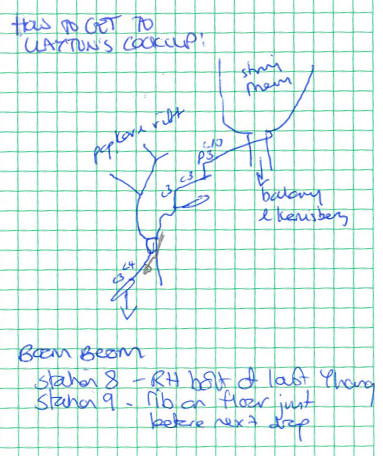 HOW TO GET TO
CLAYTON'S COCKUP!
string
popcorn rift
C10
P3
C3
C3
balcony
C4
C3
Boom Boom
Station 8 - RH bolt of last
Station 9 - rib on floor just
before next drop